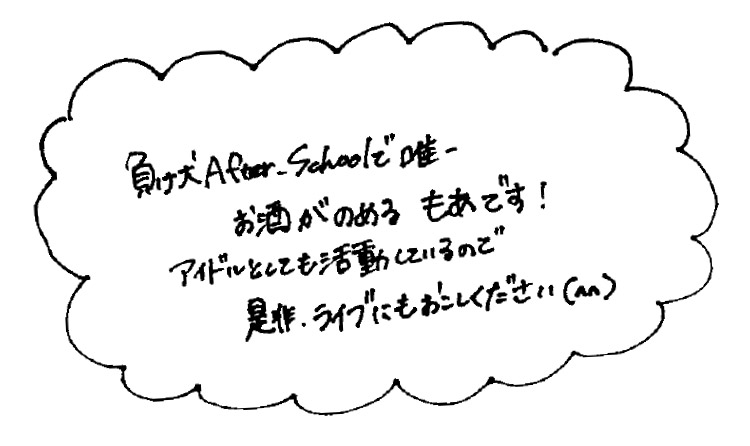 負け犬After-Schoolで唯一
お酒がのめる もあです！
アイドルとしても活動しているので
是非、ライブにもおこしください(^^)